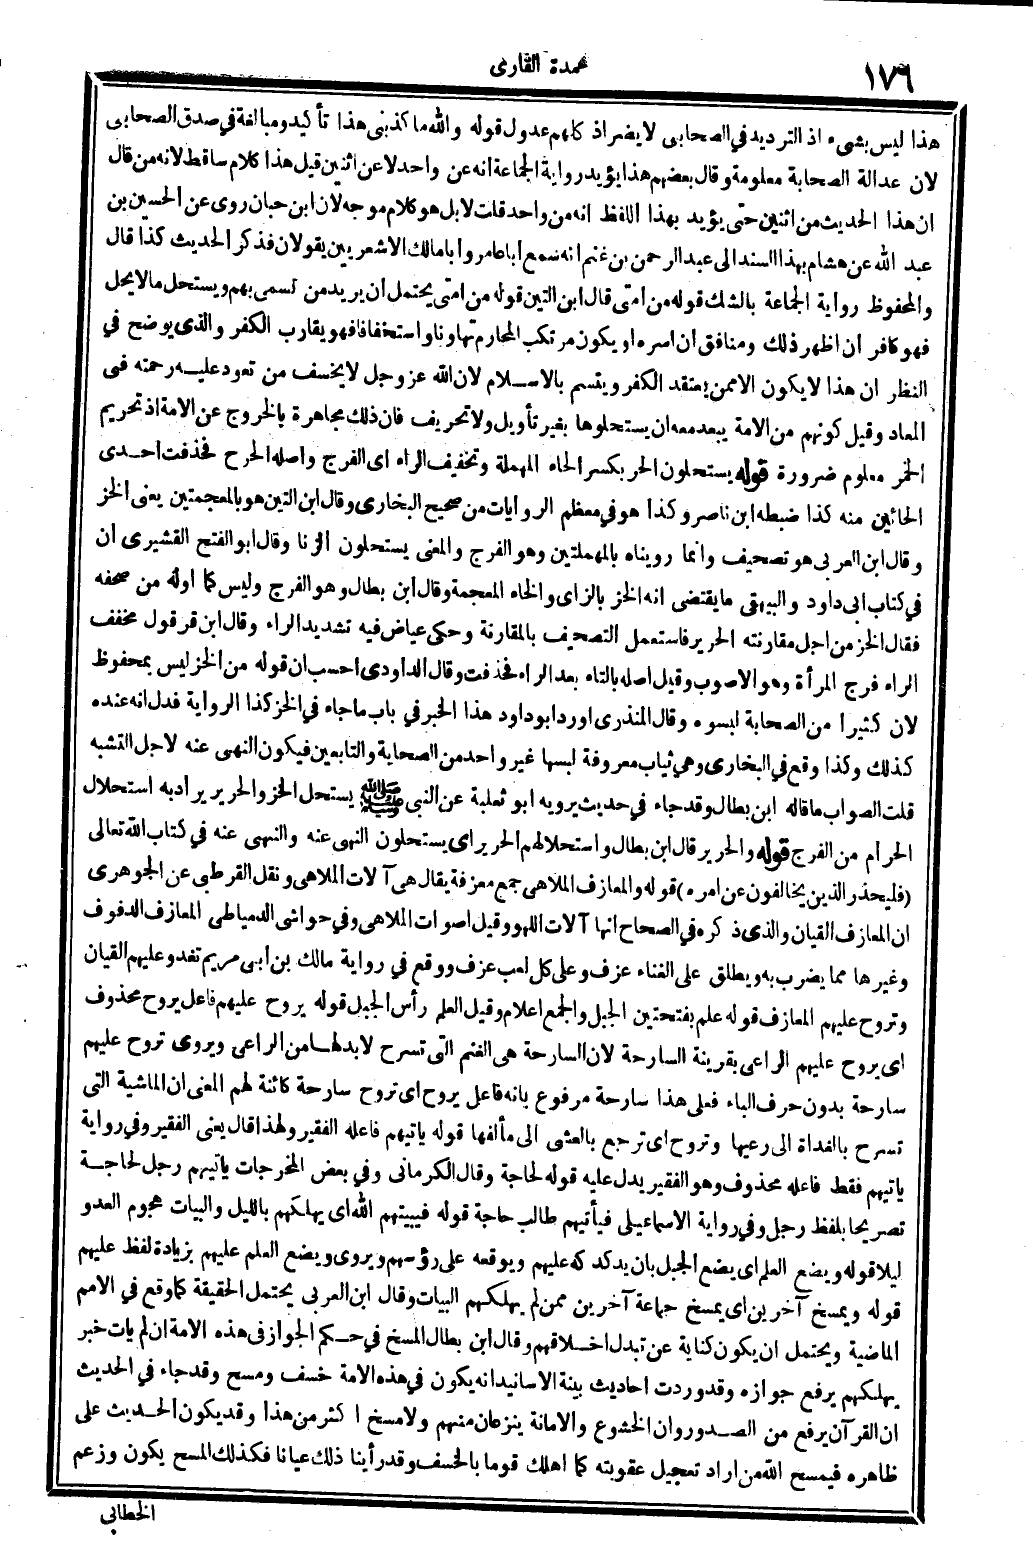 ١٧٦
عمدة القارى
هذا ليس بشىء اذ الترديد في الصحابى لا يضر اذ كلهم عدول قوله والله ما كذبنى هذا تأكيد ومبالغة في صدق الصحابى
لان عدالة الصحابة معلومة وقال بعضهم هذا يؤيد رواية الجماعة انه عن واحد لا عن اثنين قيل هذا كلام ساقط لانه من قال
ان هذا الحديث من اثنين حتى يؤيد بهذا اللفظ انه من واحد قلت لا بل هو كلام موجه لان ابن حبان روى عن الحسين بن
عبد الله عن هشام بهذا السند الى عبد الرحمن بن غنم انه سمع أبا عامر وأبا مالك الاشعريين يقولان فذكر الحديث كذا قال
والمحفوظ رواية الجماعة بالشك قوله من أمتى قال ابن التين قوله من امتى يحتمل أن يريد من تسمى بهم ويستحل ما لا يحل
فهو كافر ان اظهر ذلك ومنافق ان اسره او يكون مرتكب المحارم تهاونا واستخفافا فهو يقارب الكفر والذى يوضح في
النظار ان هذا لا يكون الا ممن يعتقد الكفر ويتسم بالاسلام لان الله عز وجل لا يخسف من تعود عليه رحمته فى
المعاد وقيل كونهم من الامة يبعد معه ان يستحلوها بغير تأويل ولا تحريف فان ذلك مجاهرة بالخروج عن الامة اذ تحريم
الخمر معلوم ضرورة قوله يستحلون الحر بكسر الحاء المهملة وتخفيف الراء اى الفرج واصله الحرح فحذفت احدى
الحائين منه كذا ضبطه ابن ناصر وكذا هو في معظم الروايات من صحيح البخارى وقال ابن التين هو بالمعجمتين يعنى الخز
وقال ابن العربى هو تصحيف وانما رويناه بالمهملتين وهو الفرج والمعنى يستحلون الزنا وقال ابو الفتح القشيرى ان
في كتاب ابى داود والبيهقى ما يقتضى انه الخز بالزاى والخاء المعجمة وقال ابن بطال وهو الفرج وليس كما اوله من صحفه
فقال الخز من اجل مقارنته الحرير فاستعمل التصحيف بالمقارنة وحكى عياض فيه تشديد الراء وقال ابن قرقول مخفف
الراء فرج المرأة وهو الاصوب وقيل اصله بالتاء بعد الراء فحذفت وقال الداودى احسب ان قوله من الخز ليس بمحفوظ
لان كثيرا من الصحابة لبسوه وقال المنذرى اورد ابو داود هذا الخبر في باب ما جاء في الخز كذا الرواية فدل انه عنده
كذلك وكذا وقع في البخارى وهي ثياب معروفة لبسها غير واحد من الصحابة والتابعين فيكون النهى عنه لاجل التشبه
قلت الصواب ما قاله ابن بطال وقد جاء في حديث يرويه ابو ثعلبة عن النبي ﷺ يستحل الخز والحرير يراد به استحلال
الحرام من الفرج قوله والحرير قال ابن بطال واستحلالهم الحرير اى يستحلون النهى عنه والنهى عنه في كتاب الله تعالى
(فليحذر الذين يخالفون عن امره) قوله والمعازف الملاهى جمع معزفة يقال هى آلات الملاهى ونقل القرطبى عن الجوهرى
ان المعازف القيان والذى ذكره في الصحاح انها آلات اللهو وقيل اصوات الملاهى وفي حواشى الدمياطى المعازف الدفوف
وغيرها مما يضرب به ويطلق على الغناء عزف وعلى كل لعب عزف ووقع في رواية مالك بن أبى مريم تغدو عليهم القيان
وتروح عليهم المعازف قوله علم بفتحتين الجبل والجمع اعلام وقيل العلم رأس الجبل قوله يروح عليهم فاعل يروح محذوف
اى يروح عليهم الراعى بقرينة السارحة لان السارحة هى الغنم التى تسرح لا بد لها من الراعى ويروى تروح عليهم
سارحة بدون حرف الباء فعلى هذا سارحة مرفوع بانه فاعل يروح اى تروح سارحة كائنة لهم المعنى ان الماشية التى
تسرح بالغداة الى رعيها وتروح اى ترجع بالعشى الى مألفها قوله ياتيهم فاعله الفقير ولهذا قال يعنى الفقير وفي رواية
ياتيهم فقط فاعله محذوف وهو الفقير يدل عليه قوله لحاجة وقال الكرمانى وفي بعض المخرجات ياتيهم رجل لحاجة
تصريحا بلفظ رجل وفي رواية الاسماعيلى فيأتيهم طالب حاجة قوله فيبيتهم الله اى يهلكهم بالليل والبيات هجوم العدو
ليلا قوله ويضع العلم اى يضع الجبل بان يدكدكه عليهم ويوقعه على رؤسهم ويروى ويضع العلم عليهم بزيادة لفظ عليهم
قوله ويمسخ آخرين اى يمسخ جماعة آخرين ممن لم يهلكهم البيات وقال ابن العربى يحتمل الحقيقة كما وقع في الامم
الماضية ويحتمل ان يكون كناية عن تبدل اخلاقهم وقال ابن بطال المسخ في حكم الجواز فى هذه الامة ان لم يات خبر
يهلكهم يرفع جوازه وقد وردت احاديث بينة الاسانيد انه يكون في هذه الامة خسف ومسح وقد جاء في الحديث
ان القرآن يرفع من الصدور وان الخشوع والامانة ينزعان منهم ولا مسخ اكثر من هذا وقد يكون الحديث على
ظاهره فيمسخ الله من اراد تعجيل عقوبته كما اهلك قوما بالخسف وقد رأينا ذلك عيانا فكذلك المسح يكون وزعم
الخطابي